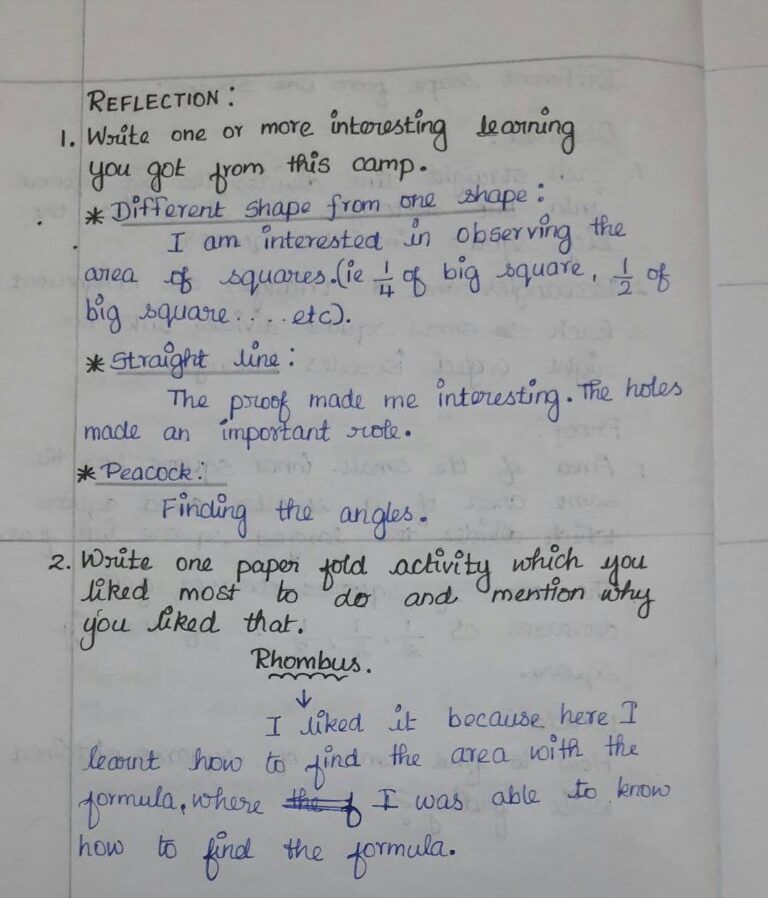 REFLECTION:
1. Write one or more interesting learning
you got from this camp.
* Different shape from one shape:
I am interested in observing the
area of squares.(ie 1/4 of big square, 1/2 of
big square.... etc).
* Straight line:
The proof made me interesting. The holes
made an important role.
* Peacock:
Finding the angles.
2. Write one paper fold activity which you
liked most to do and mention why
you liked that.
Rhombus.
↓
I liked it because here I
learnt how to find the area with the
formula, where I was able to know
how to find the formula.